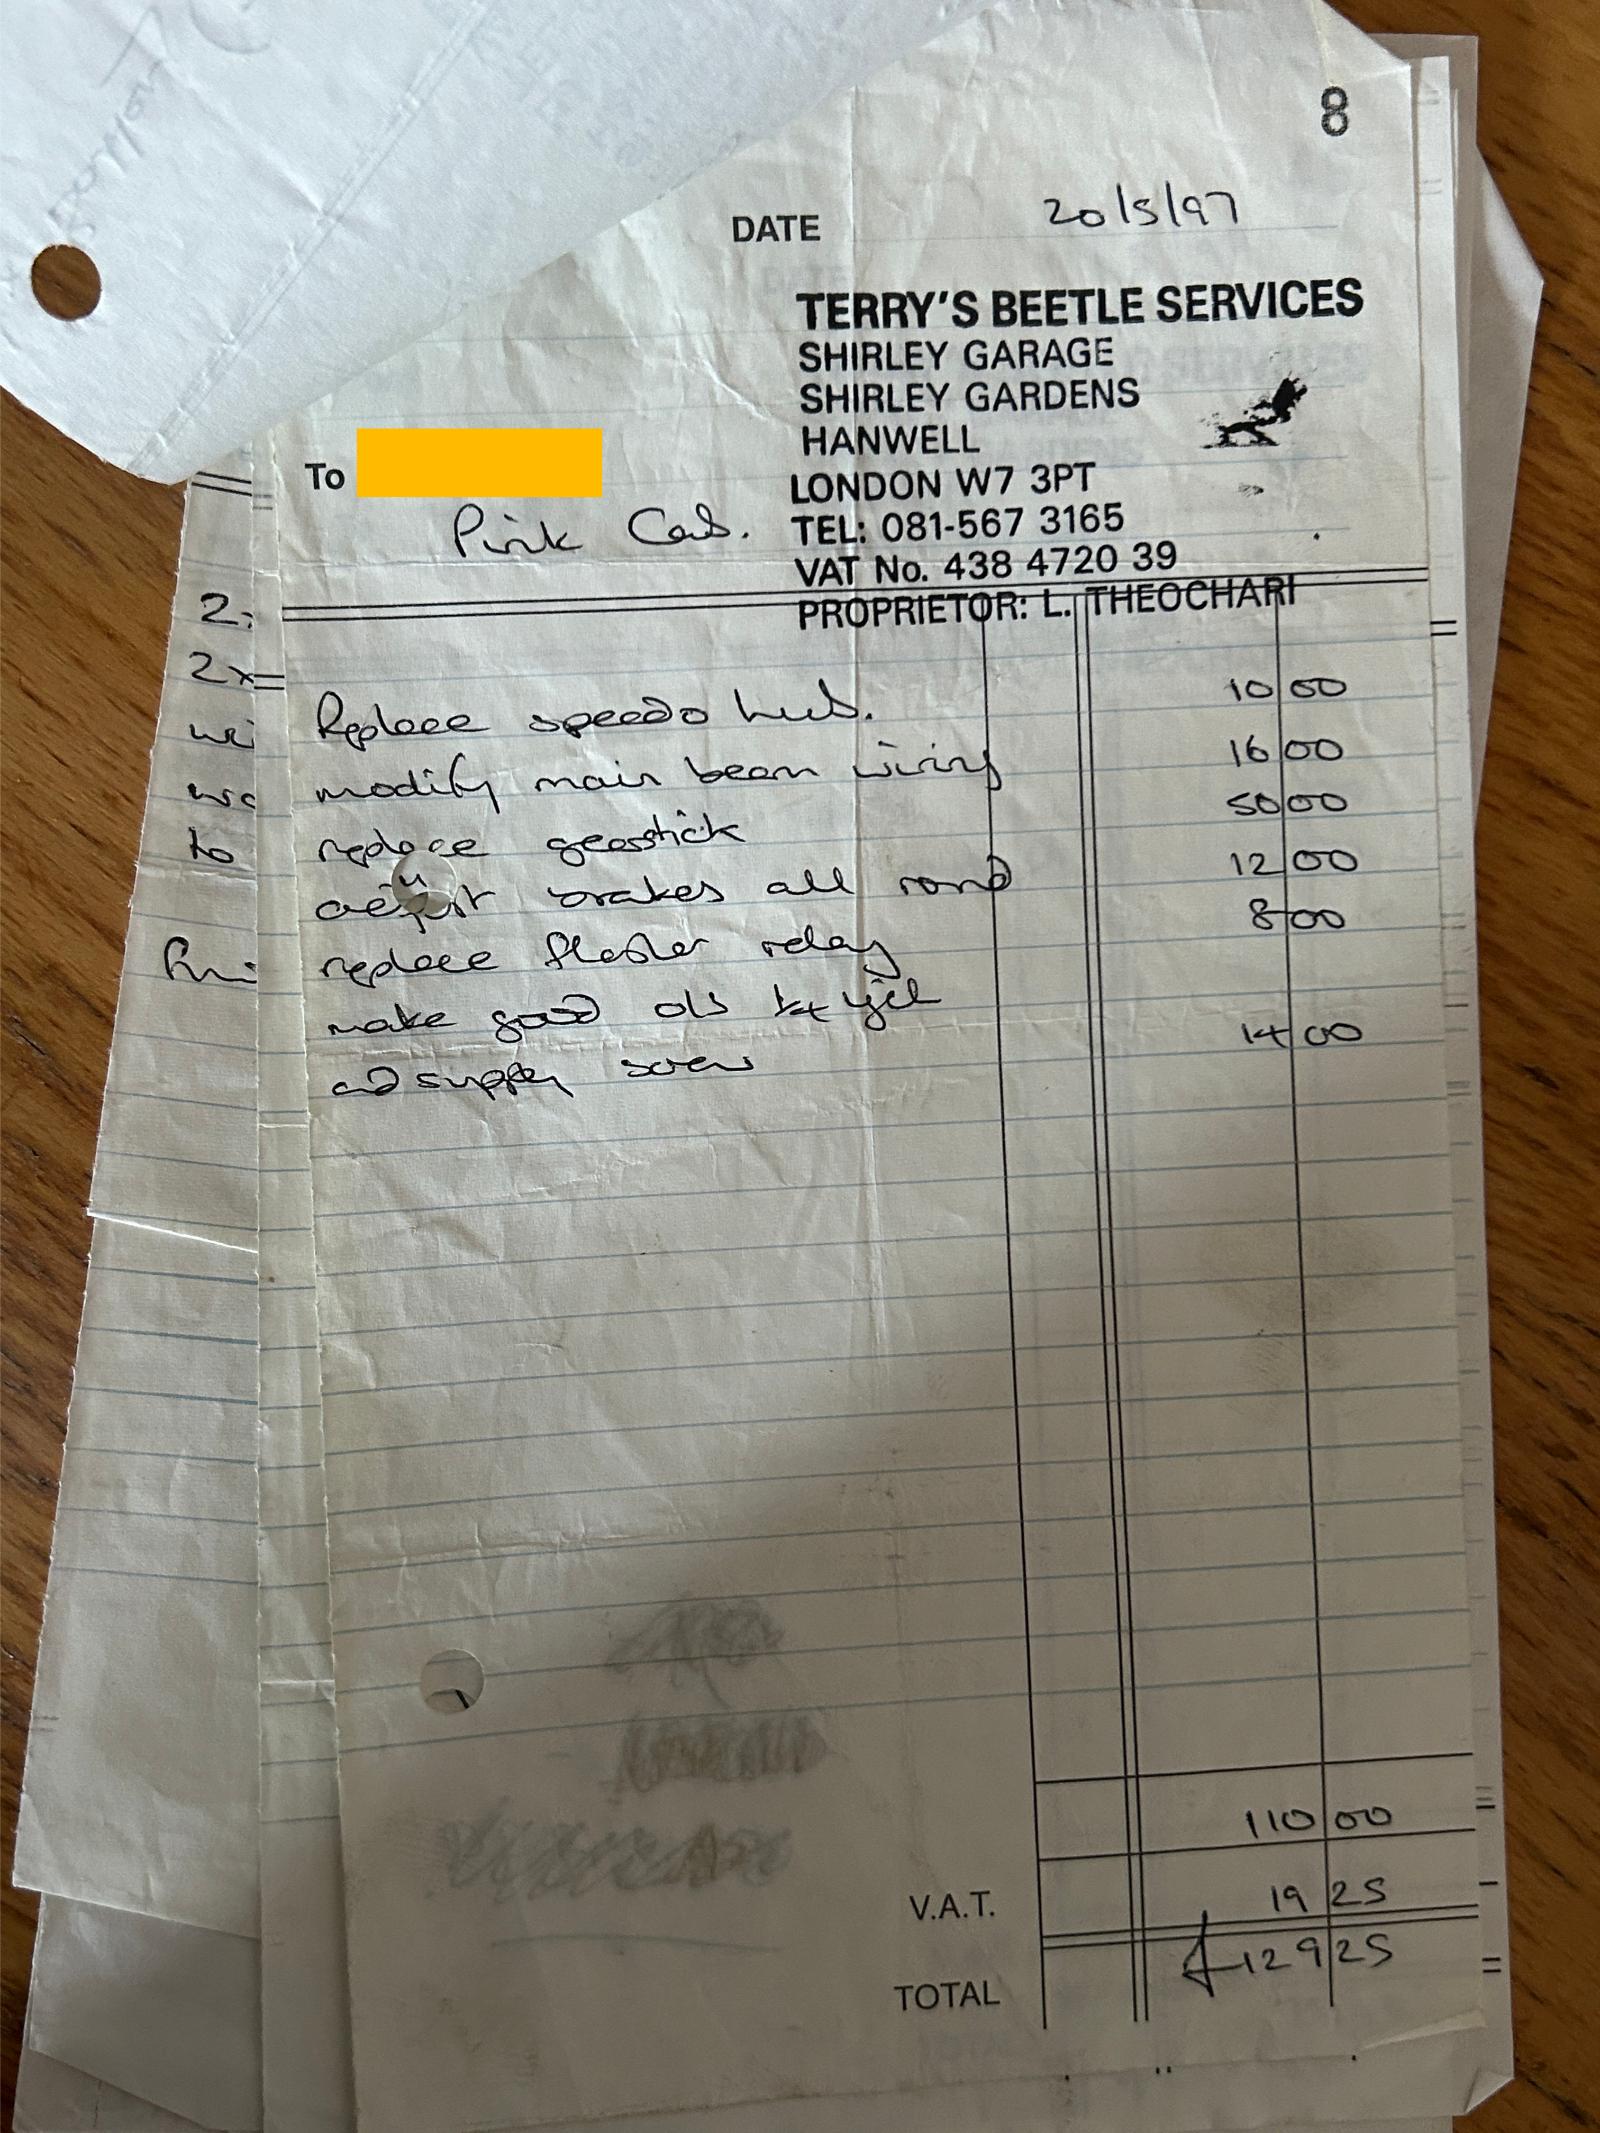 8
DATE 20/5/97
TERRY'S BEETLE SERVICES
SHIRLEY GARAGE
SHIRLEY GARDENS
HANWELL
LONDON W7 3PT
TEL: 081-567 3165
VAT No. 438 4720 39
PROPRIETOR: L. THEOCHARI
To
Pink Cab.
Replace speedo hub. 10 00
modify main beam wiring 16 00
replace gearstick 50 00
adjust brakes all rond 12 00
replace flasher relay 8 00
make good old
and supply screw 14 00
110 00
V.A.T. 19 25
TOTAL £129 25
2
2x
to